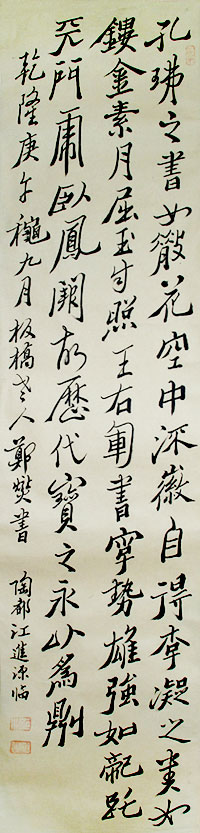 孔琳之書如散花空中深徽自得李凝之書如
鏤金素月屈玉自照王右軍書字勢雄強如龍跳
天門虎臥鳳闕故歷代寶之永以為訓
乾隆庚午穐九月板橋老人鄭燮書
陶都江進源臨